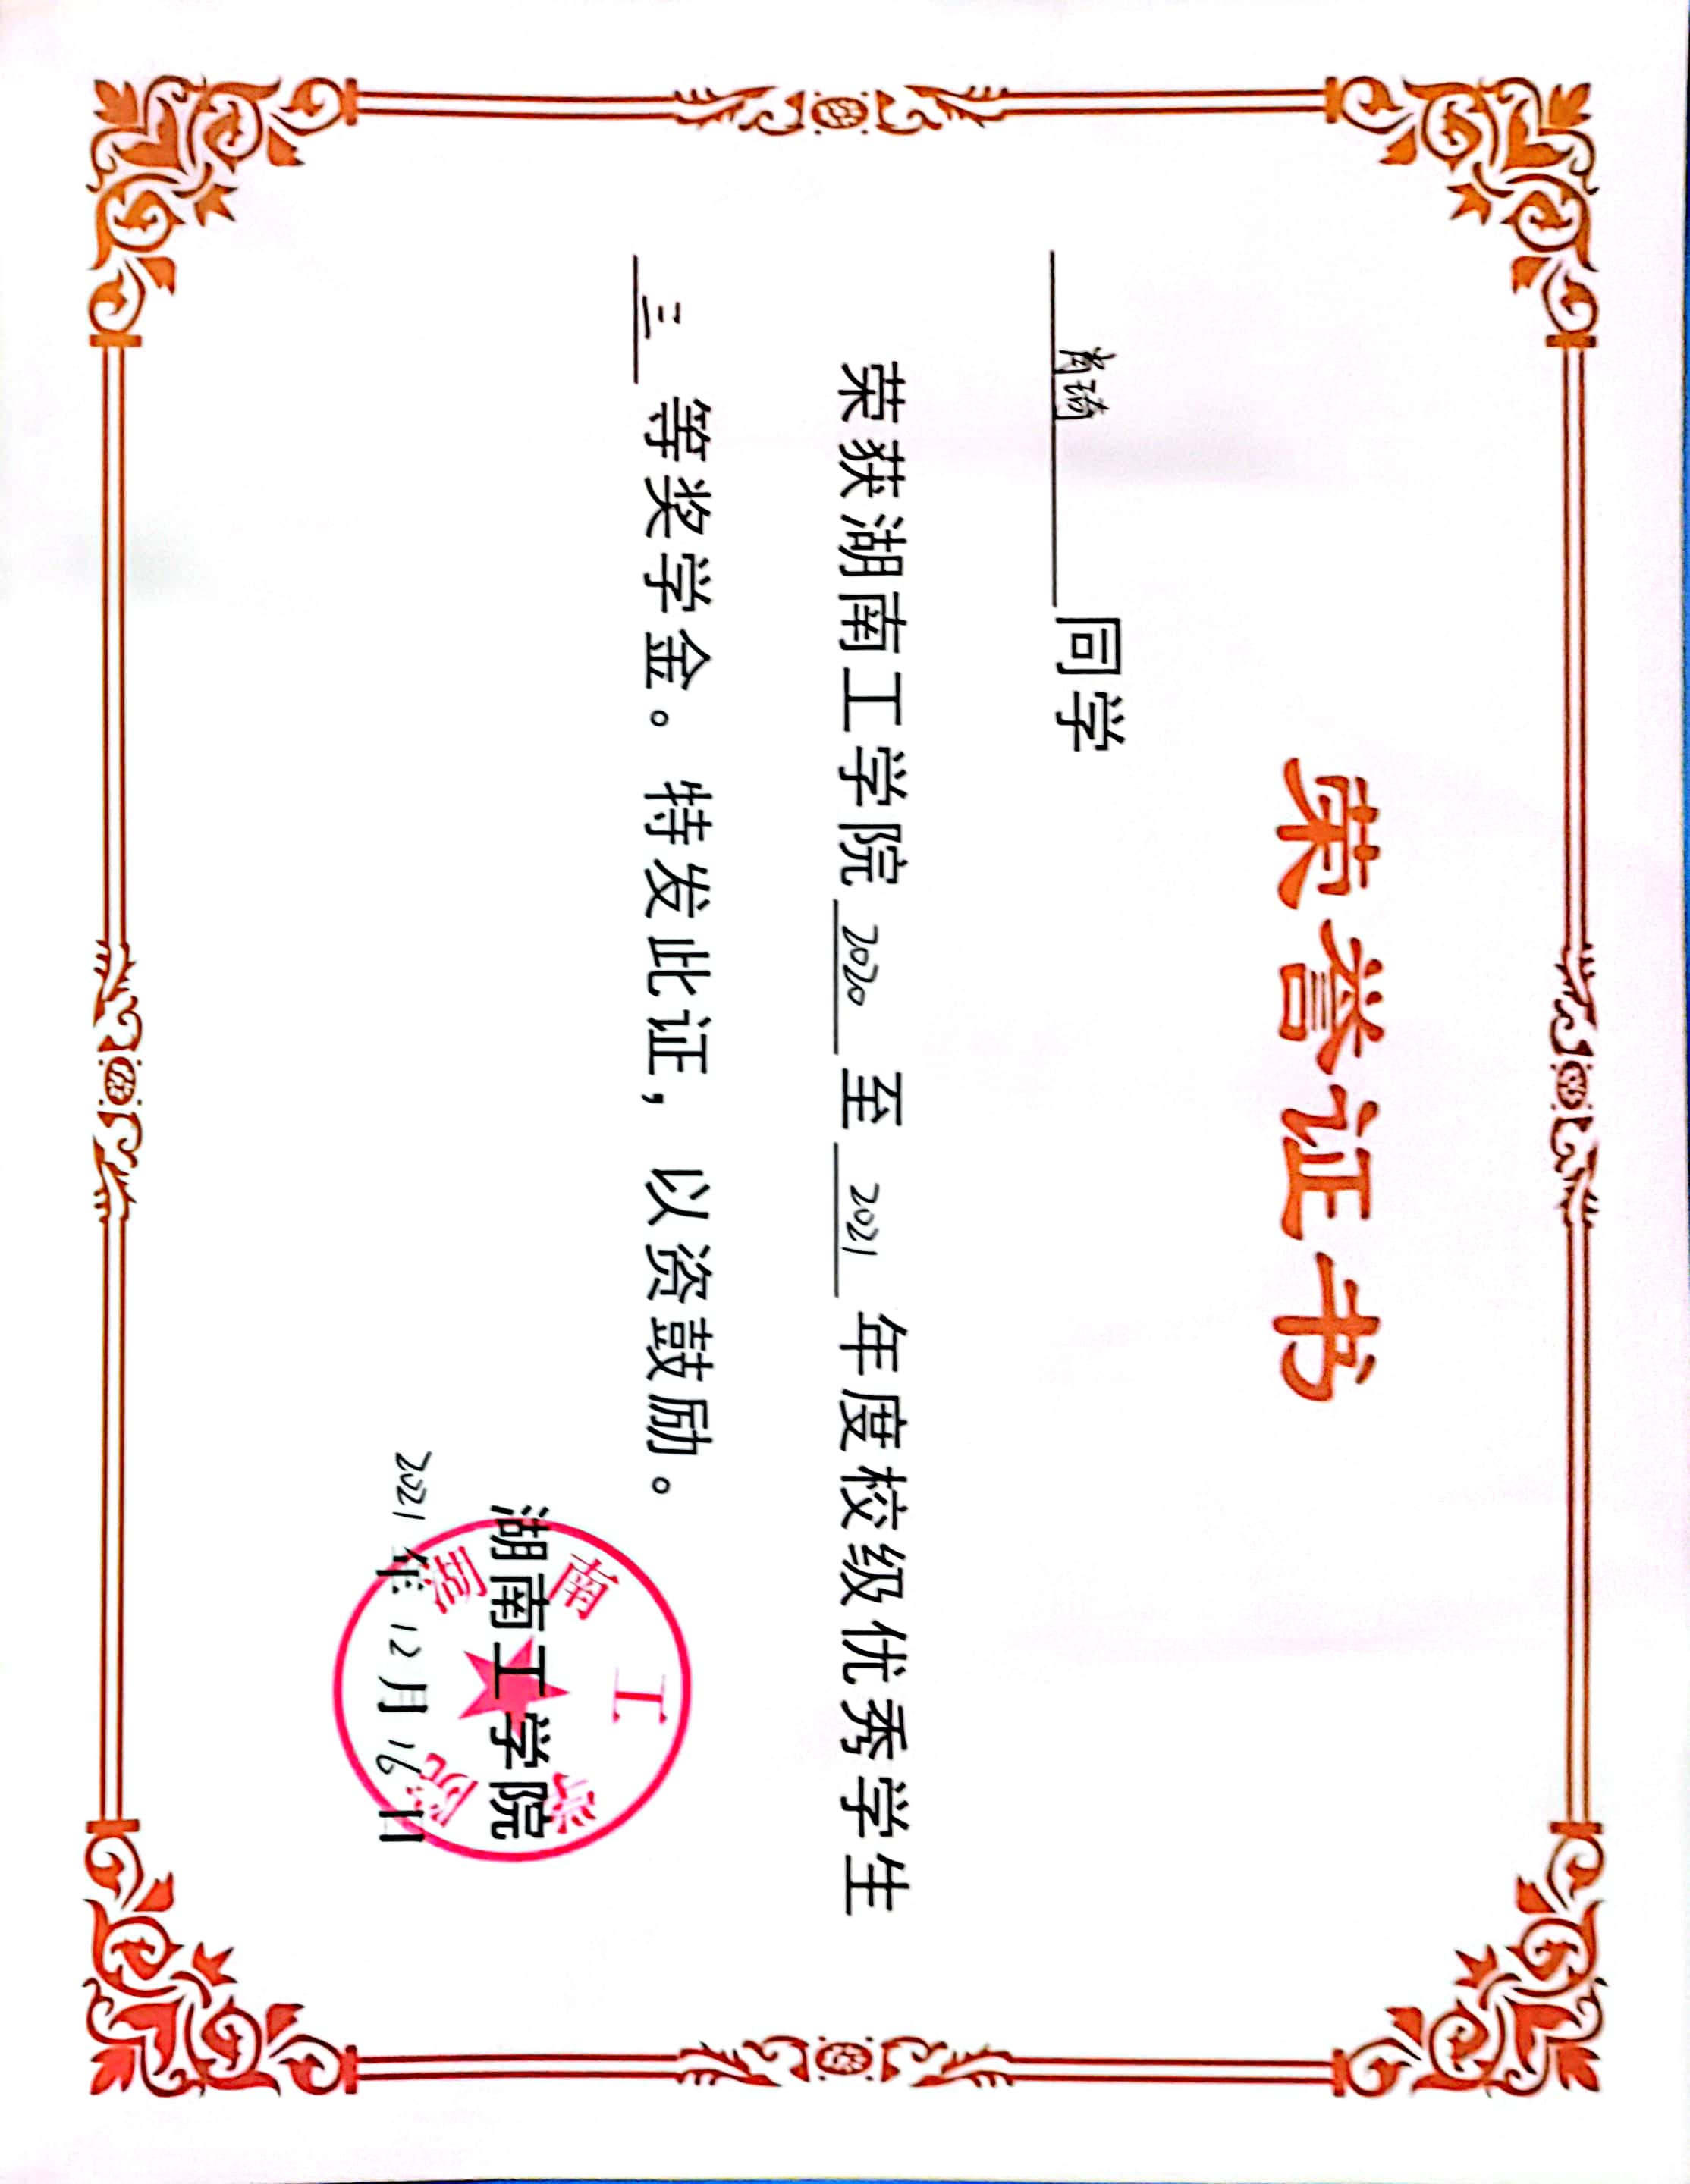 荣誉证书
同学
荣获湖南工学院 2020 至 2021 年度校级优秀学生
三 等奖学金。特发此证，以资鼓励。
湖南工学院
2021 年 12 月 16 日
湖南工学院